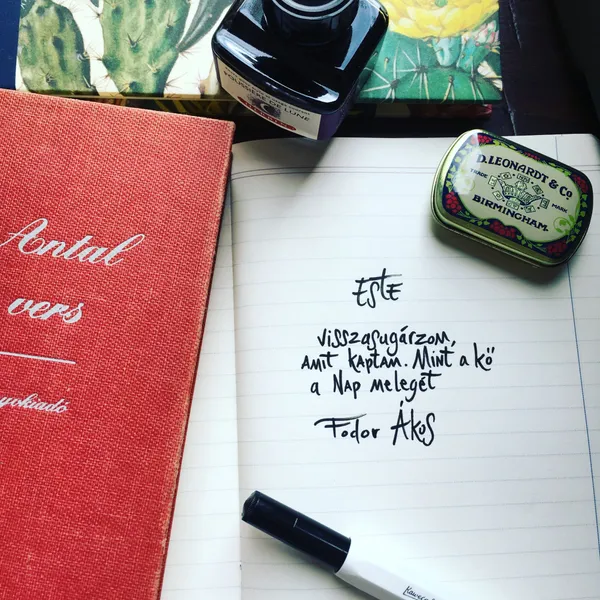 POUSSIÈRE DE LUNE
D. LEONARDT & CO.
TRADE MARK
BIRMINGHAM.
Antal
vers
ESTE
visszasugárzom,
amit kaptam. Mint a kő
a Nap melegét
Fodor Ákos